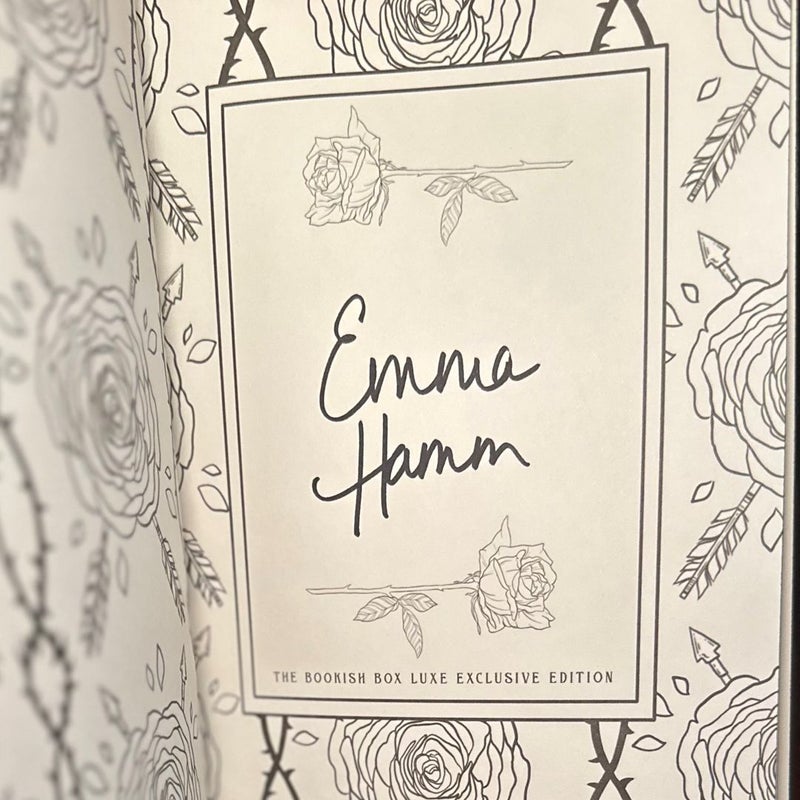 Emma
Hamm
THE BOOKISH BOX LUXE EXCLUSIVE EDITION